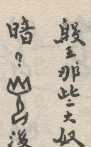 殷王那些大奴
暗？後